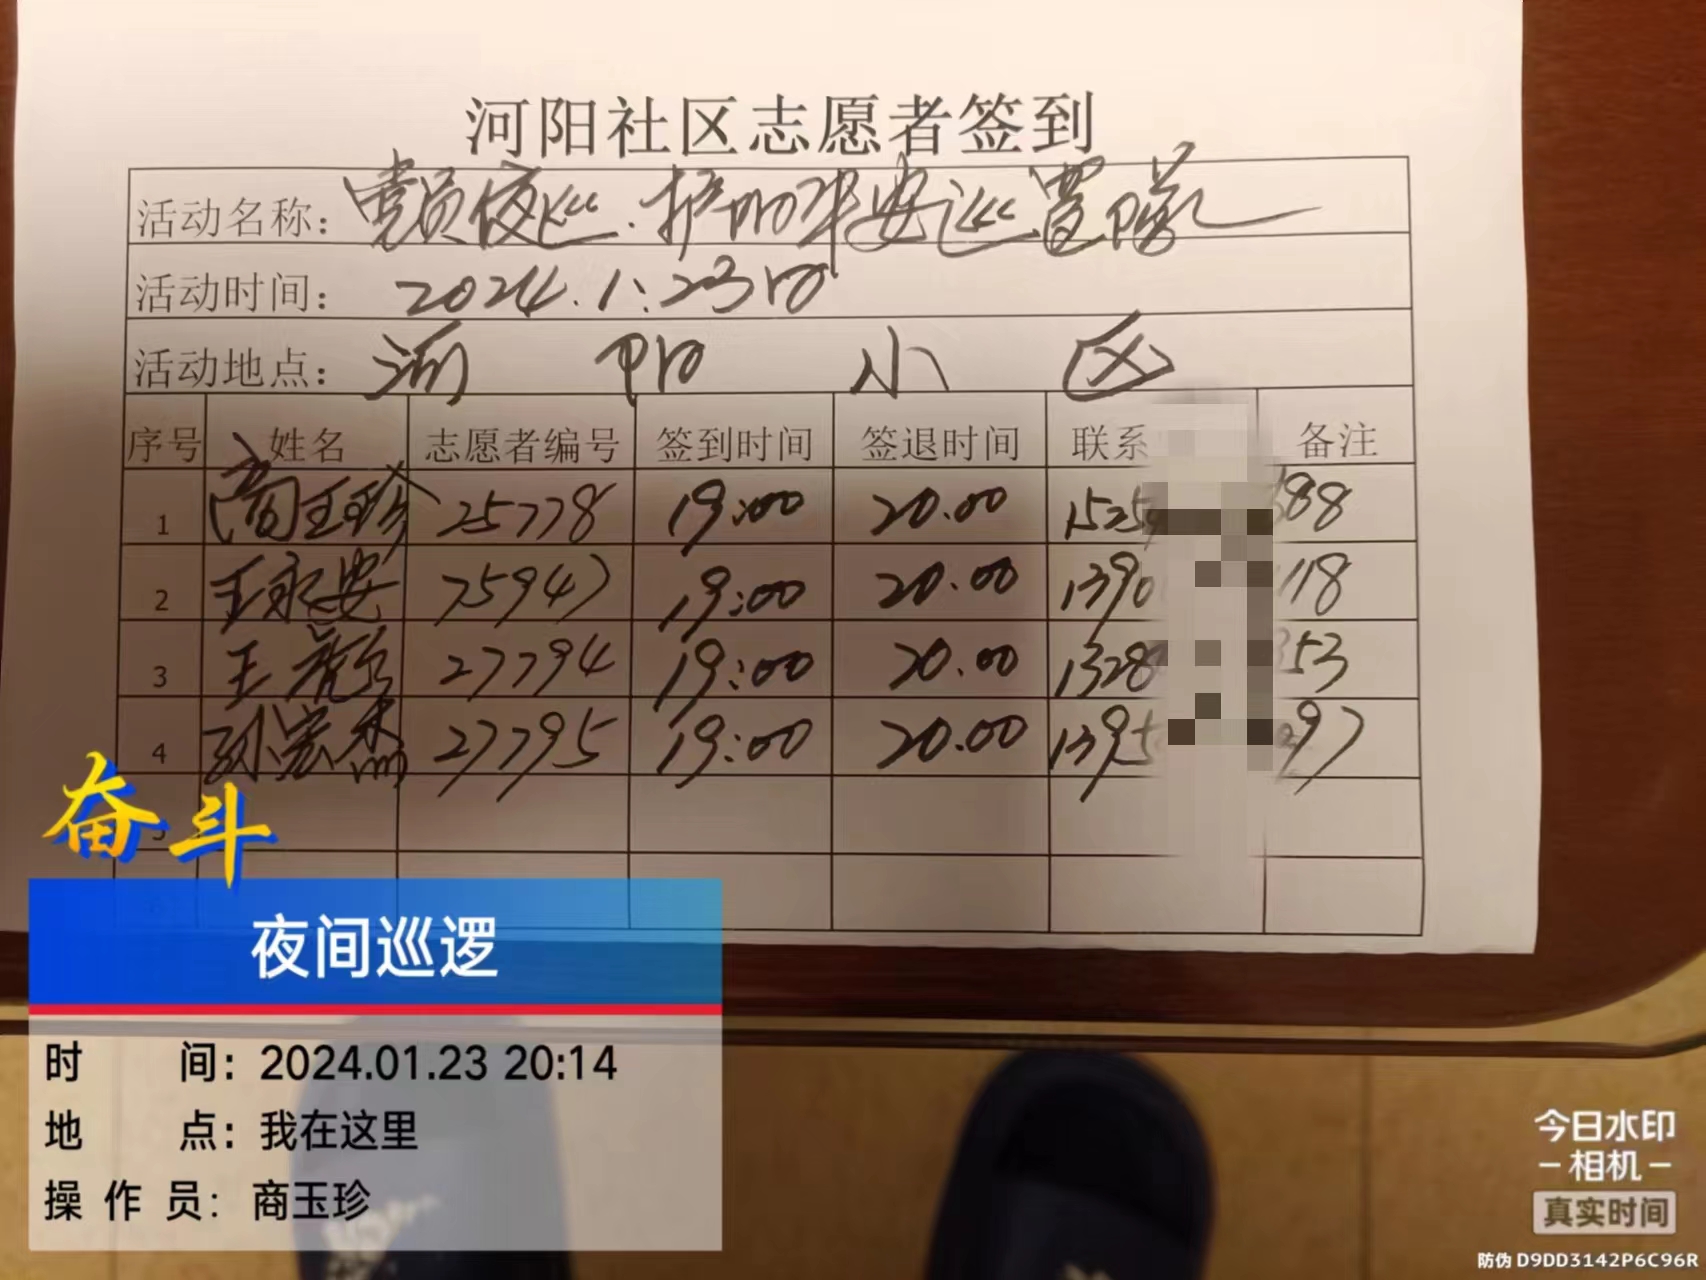 河阳社区志愿者签到
活动名称：党员夜巡.护阳平安巡置队
活动时间：2024.1.23日
活动地点：河阳小区
序号 姓名 志愿者编号 签到时间 签退时间 联系 备注
1 商玉珍 25778 19:00 20.00 1525 88
2 王永安 25947 19:00 20.00 1390 118
3 王 27794 19:00 20.00 1328 353
4 孙宏杰 27795 19:00 20.00 1395 97
奋斗
夜间巡逻
时 间：2024.01.23 20:14
地 点：我在这里
操作员：商玉珍
今日水印
-相机-
真实时间
防伪 D9DD3142P6C96R